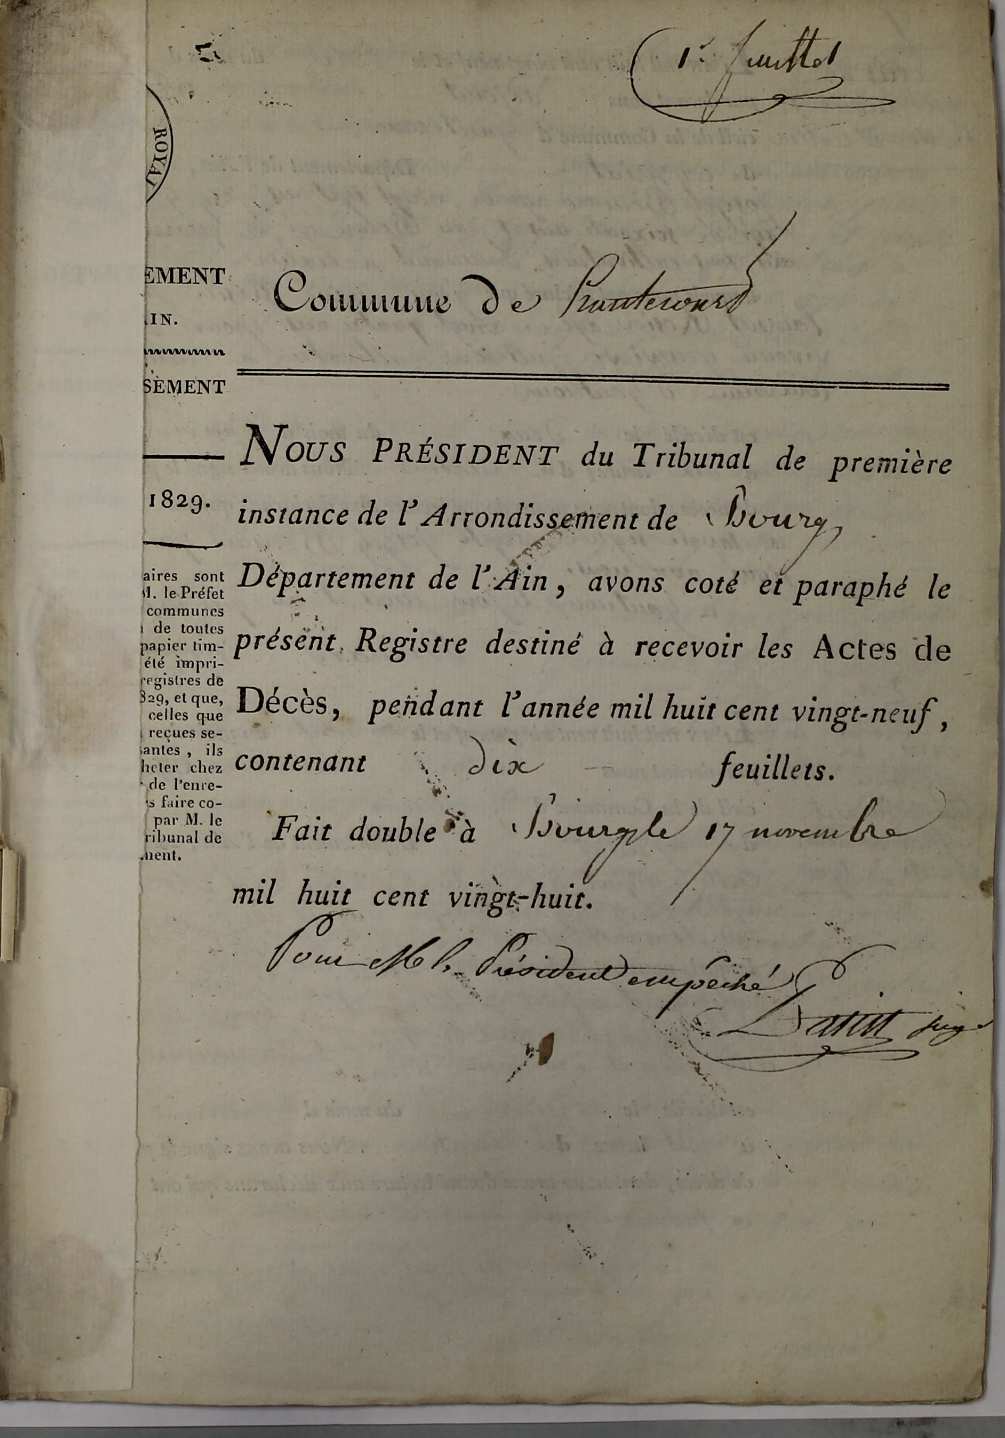 1.r feuillet
ROYAL
EMENT
AIN.
SEMENT
1829.
aires sont
M. le Préfet
communes
de toutes
papier tim-
été impri-
registres de
829, et que,
celles que
reçues se-
santes, ils
heter chez
de l'enre-
s faire co-
par M. le
ribunal de
ment.
Commune de Hautecourt
NOUS PRÉSIDENT du Tribunal de première
instance de l'Arrondissement de Bourg,
Département de l'Ain, avons coté et paraphé le
présent Registre destiné à recevoir les Actes de
Décès, pendant l'année mil huit cent vingt-neuf,
contenant dix feuillets.
Fait double à Bourg le 17 novembre
mil huit cent vingt-huit.
Pour M. le Président empêché
juge